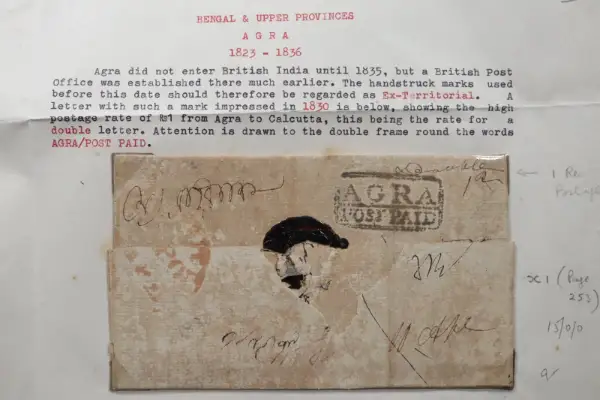 BENGAL & UPPER PROVINCES
A G R A
1823 - 1836
Agra did not enter British India until 1835, but a British Post
Office was established there much earlier. The handstruck marks used
before this date should therefore be regarded as Ex-Territorial. A
letter with such a mark impressed in 1830 is below, showing the high
postage rate of Rs1 from Agra to Calcutta, this being the rate for a
double letter. Attention is drawn to the double frame round the words
AGRA/POST PAID.
AGRA
POST PAID
← 1 Re
Postage
x 1 (Page
253)
15/0/0